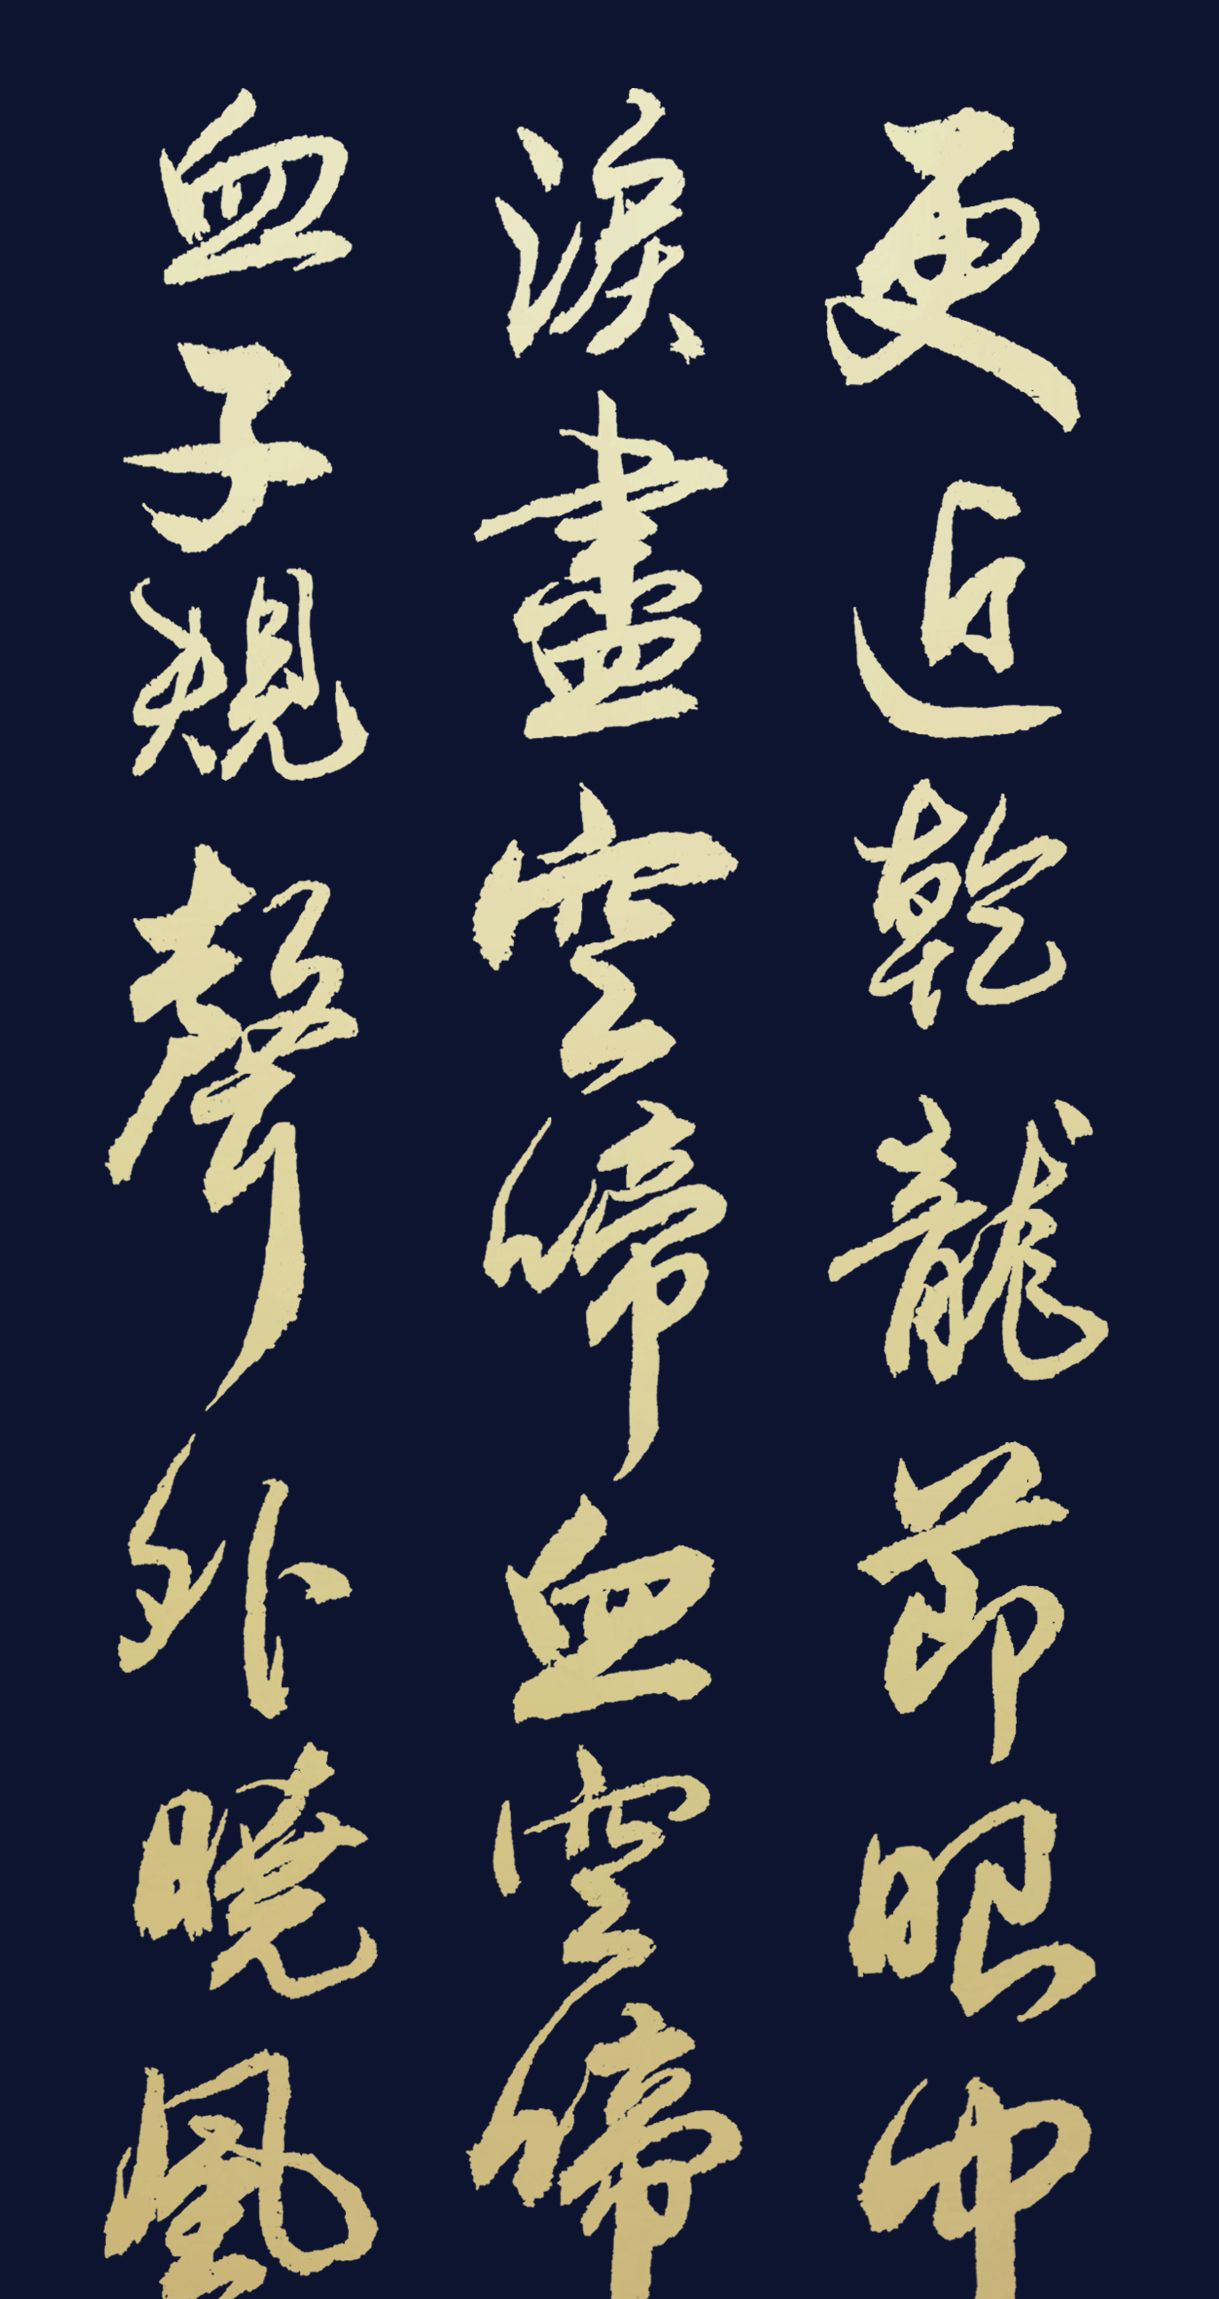 更近乾龍節眼中
淚盡空啼血空啼
血子規聲外曉風